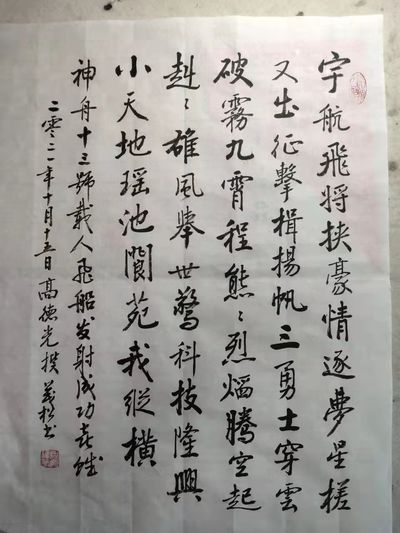 宇航飛將挾豪情逐夢星槎
又出征擊楫揚帆三勇士穿雲
破霧九霄程熊〻烈熖騰空起
赳〻雄風舉世驚科技隆興
小天地瑶池閬苑我縱橫
神舟十三號載人飛船发射成功喜賦
二零二一年十月十五日高德光撰 書